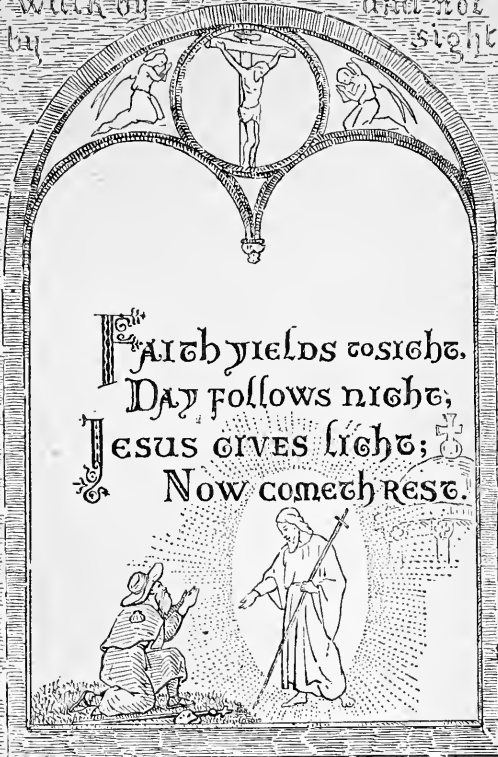 walk by and not
by sight
Faith yields to sight,
Day follows night;
Jesus gives light;
Now cometh Rest.